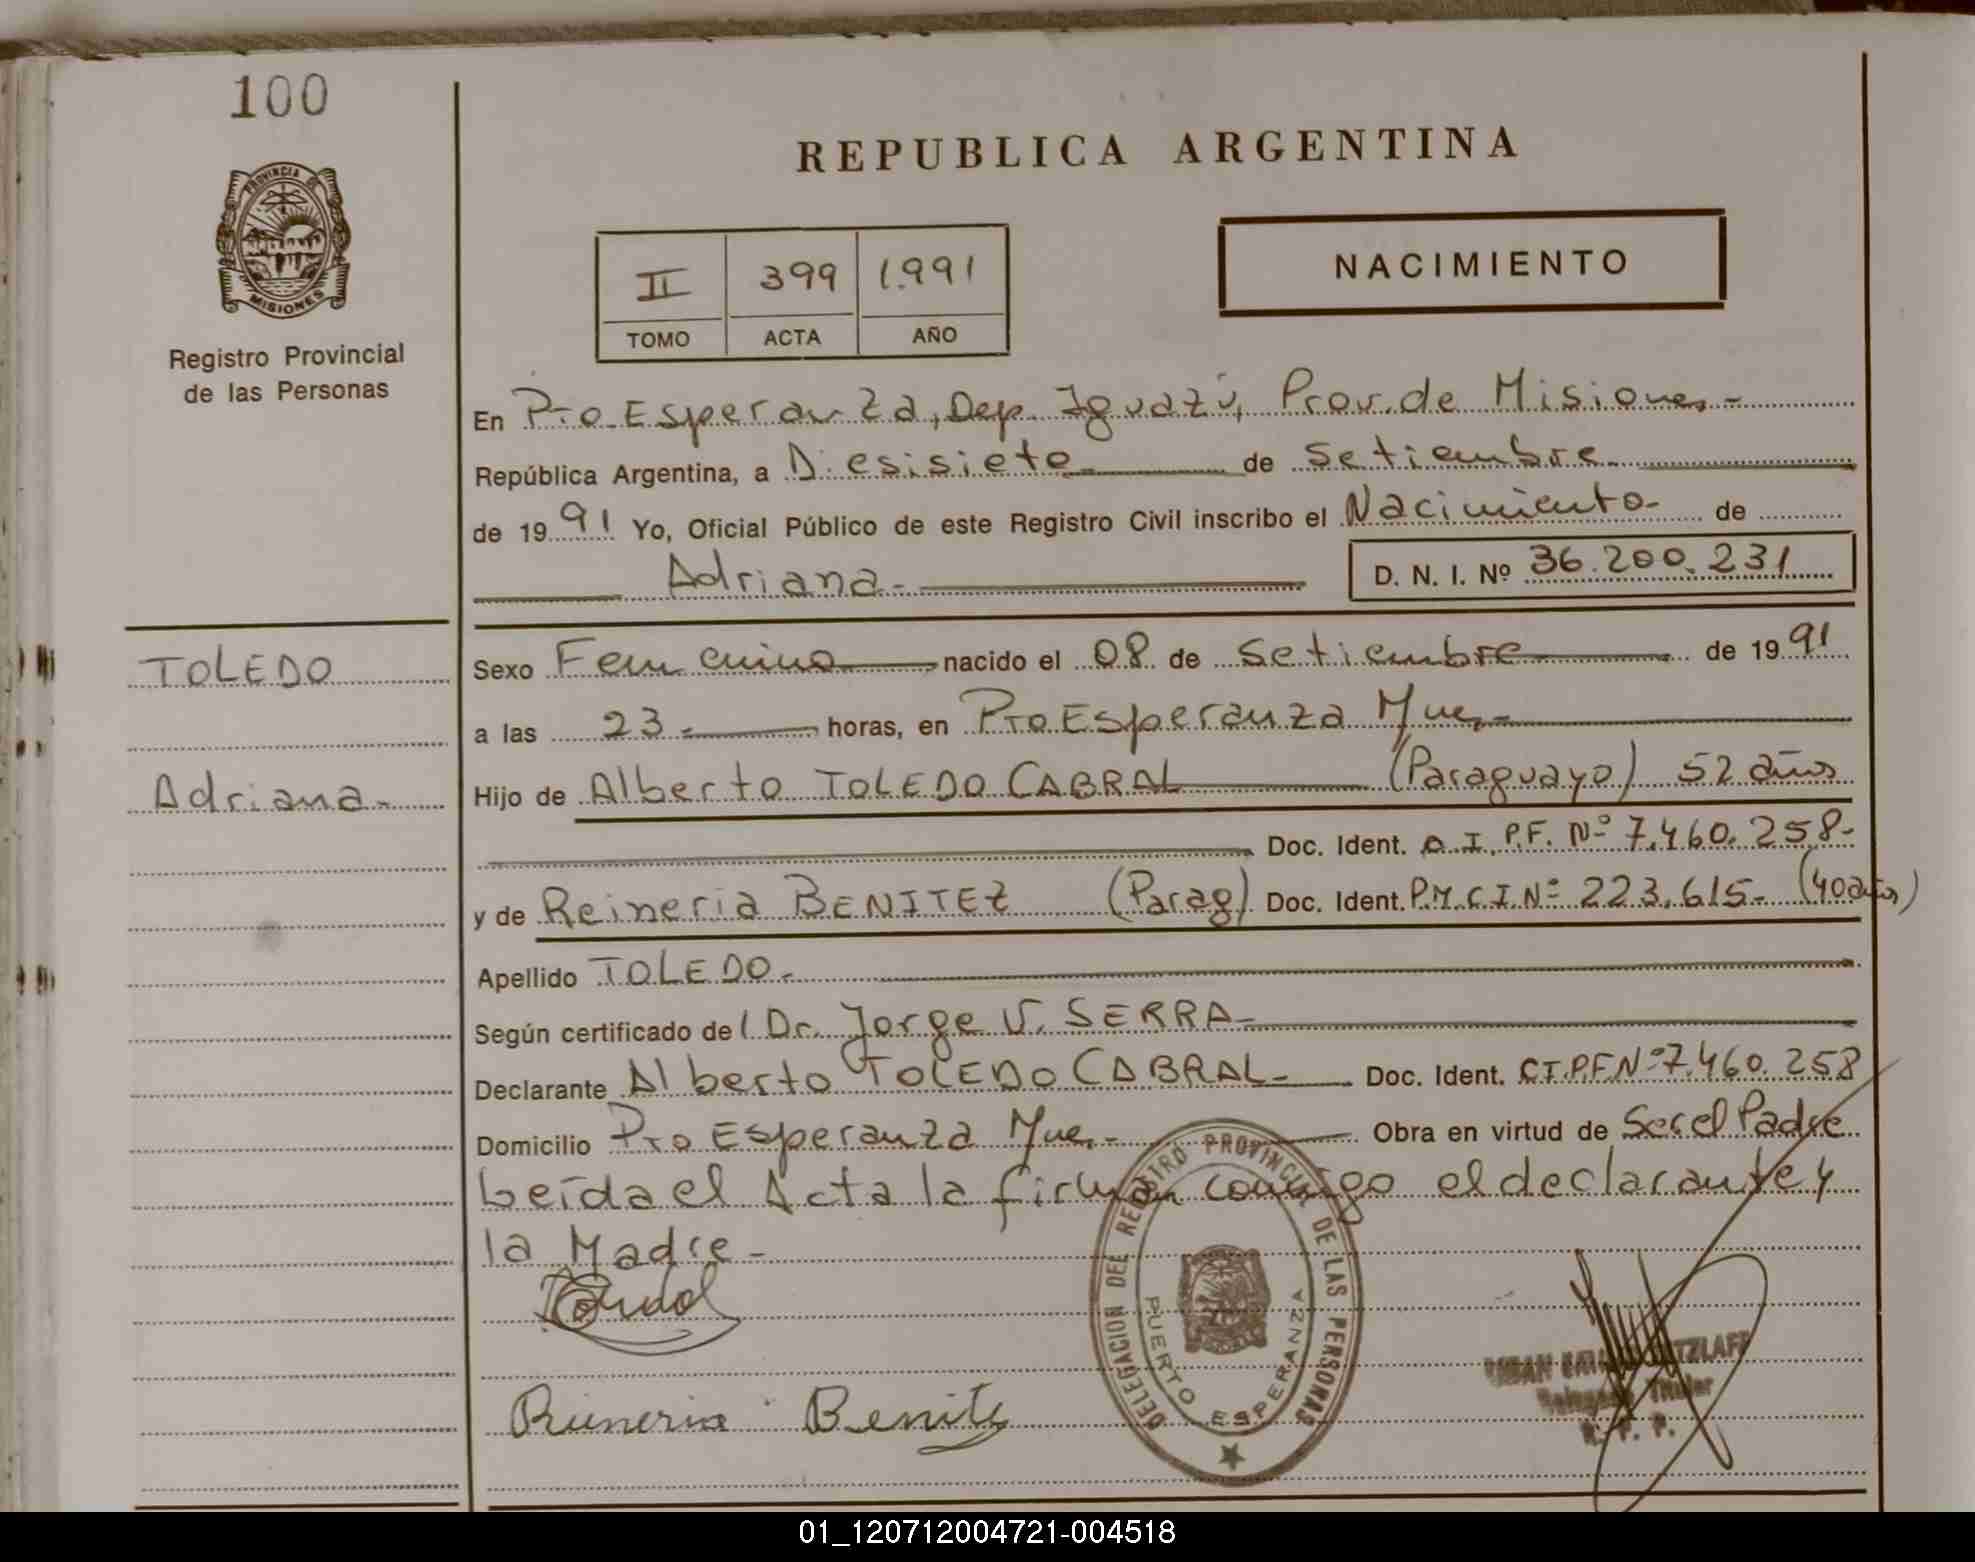 100
REPUBLICA ARGENTINA
PROVINCIA DE
MISIONES
Registro Provincial
de las Personas
II 399 1.991
TOMO ACTA AÑO
NACIMIENTO
En Pto. Esperanza, Dep. Iguazú, Prov. de Misiones.-
República Argentina, a Diesisiete de Setiembre
de 1991 Yo, Oficial Público de este Registro Civil inscribo el Nacimiento- de
Adriana.-
D. N. I. Nº 36.200.231
TOLEDO
Adriana.-
Sexo Femenino nacido el 08 de Setiembre de 1991
a las 23 horas, en Pto Esperanza Mnes.-
Hijo de Alberto TOLEDO CABRAL (Paraguayo) 52 años
Doc. Ident. P.F. Nº 7.460.258-
y de Reineria BENITEZ (Parag) Doc. Ident. P.M.C.I.Nº 223.615- (40 años)
Apellido TOLEDO.-
Según certificado del Dr. Jorge V. SERRA-
Declarante Alberto TOLEDO CABRAL- Doc. Ident. C.I.P.F.Nº 7.460.258
Domicilio Pto Esperanza Mnes.- Obra en virtud de Ser el Padre
Leída el Acta la firman conmigo el declarante y
la Madre-
DELEGACION DEL REGISTRO PROVINCIAL DE LAS PERSONAS
PUERTO ESPERANZA
Titular
R. P. P.
Reineria Benite
01_120712004721-004518